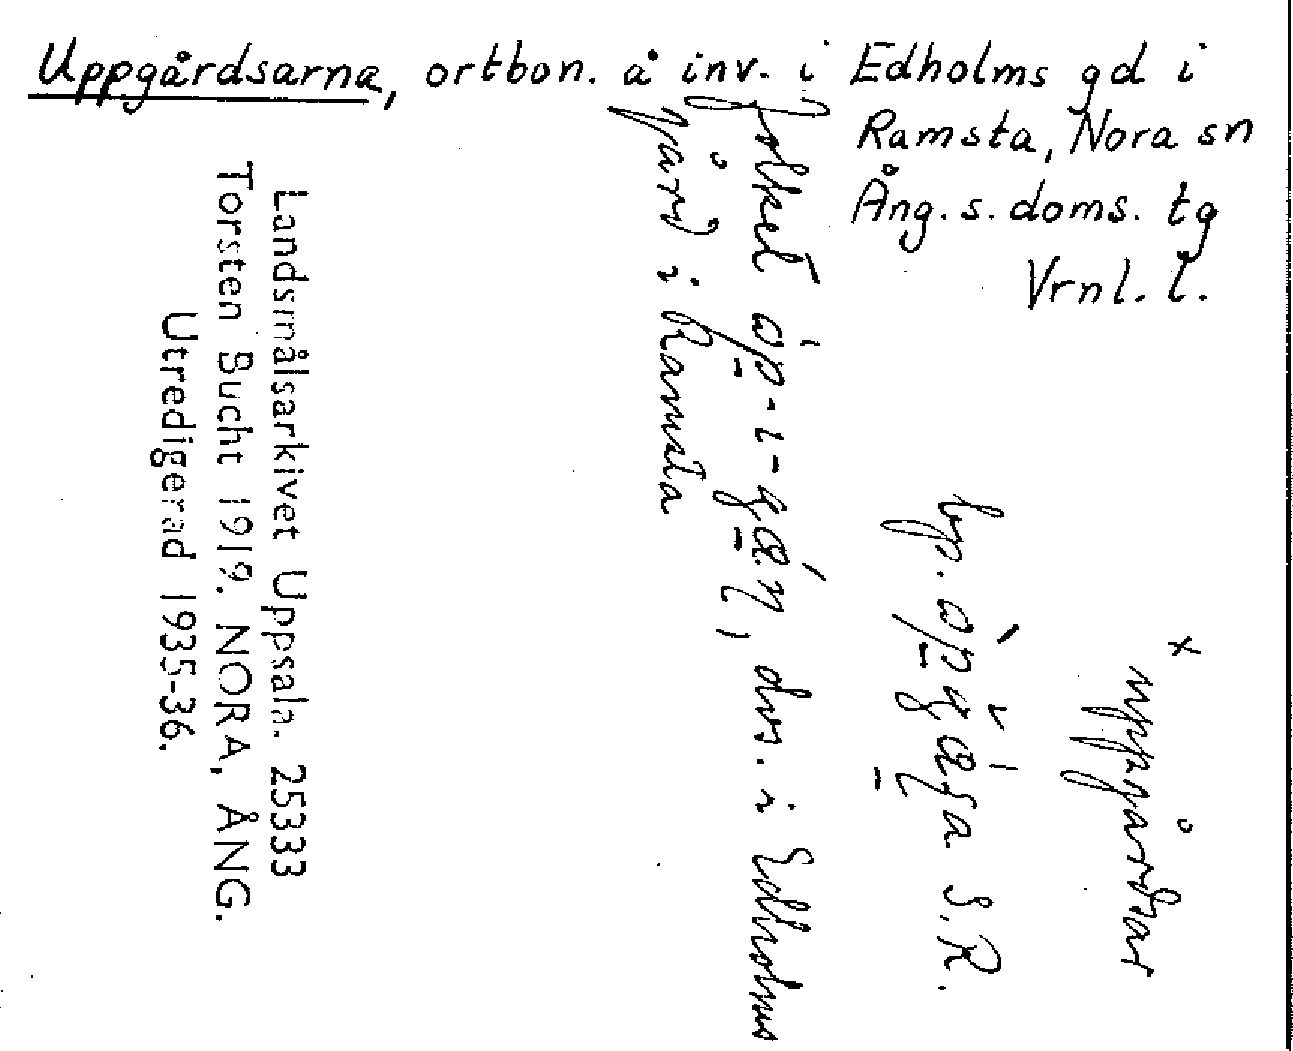 Uppgårdsarna, ortbon. å inv. i Edholms gd i
Ramsta, Nora sn
Ång. s. doms. tg
Vrnl. l.
× uppgårdsar
bp. S.R.
folket dvs. i Edholms
gård i Ramsta
Landsmålsarkivet Uppsala. 25333
Torsten Bucht 1919. NORA, ÅNG.
Utredigerad 1935-36.